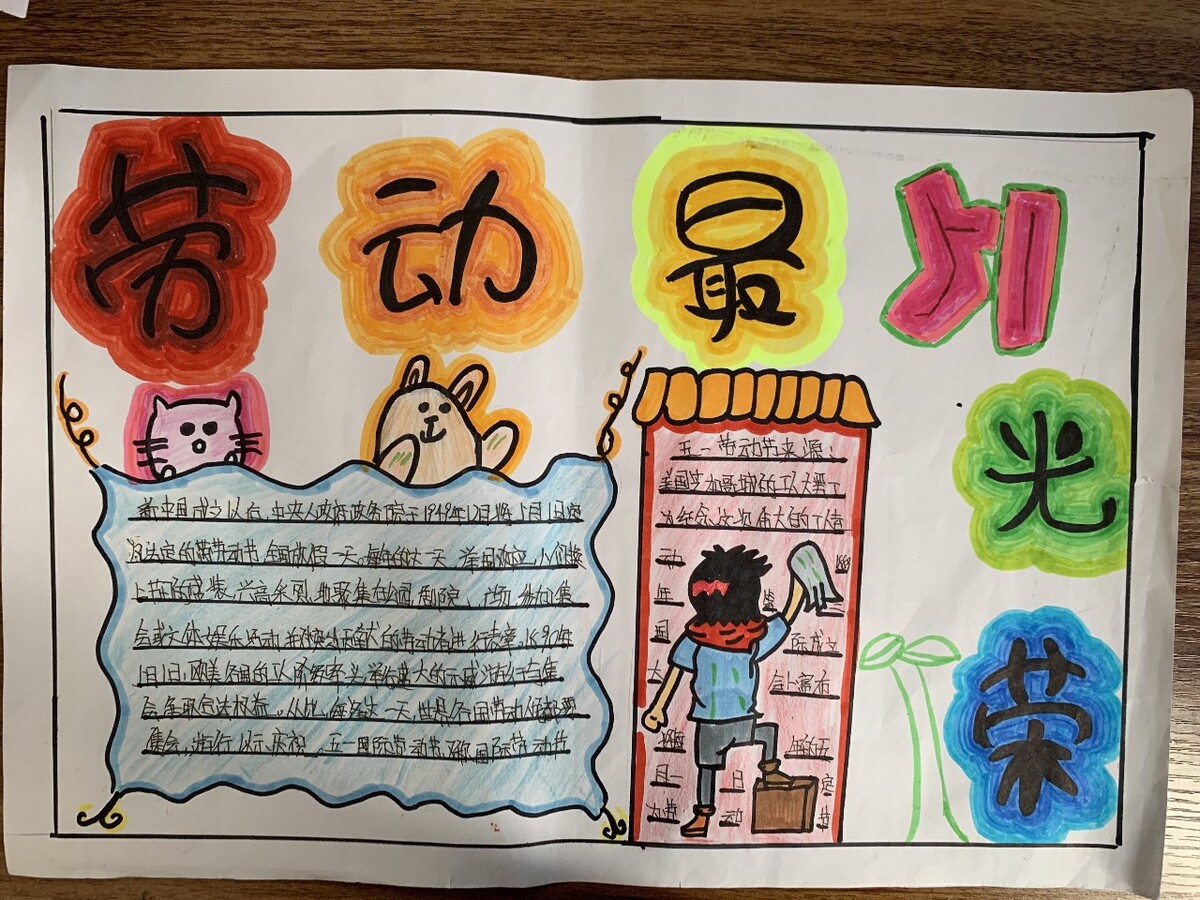 劳动最光荣
新中国成立以后,中央人政府政务院于1949年12日将5月1日定
设法定的劳动节,全国放假一天,每年的这一天,举国欢庆,人们换
上节的盛装,兴高采烈地聚集在公园,剧院,广场,参加集
会或文体娱乐活动,并对突出贡献的劳动者进行表彰,1890年
1日1日,欧美各国的
会,争取合法权益,从此,每年这一天,世界各国劳动人民都要
集会,游行,以示庆祝,五一国际劳动节,又称国际劳动节
五一劳动节来源:
美国芝加哥城的工人大罢工
为纪念这次伟大的工人
动
年
国
际成立
会上宣布
年的五
月一 日 定
为劳 动 节